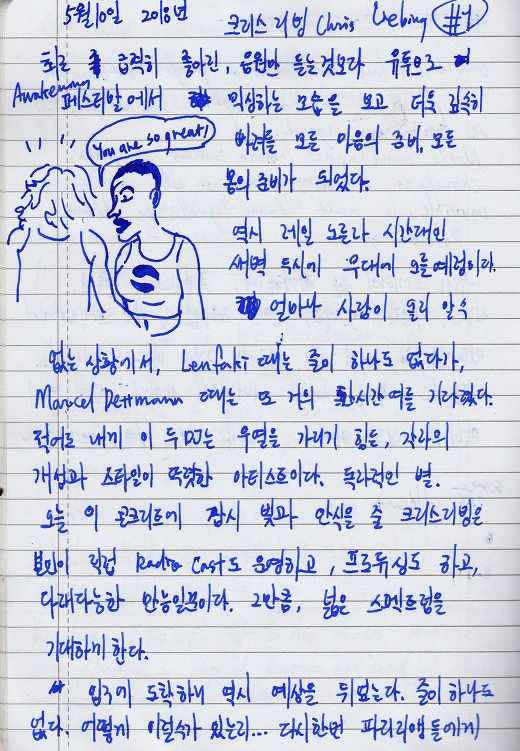 5월 10일 2018년 크리스 리빙 Chris Liebing #1
최근 급격히 좋아진, 음원만 듣는것보다 유튜브로
Awakening 페스티발에서 믹싱하는 모습을 보고 더욱 깊숙히
You are so great!
버려둘 모든 마음의 준비, 모든
몸의 준비가 되었다.
역시 레일 노른자 시간대인
새벽 두시에 무대에 오를예정이다.
얼마나 사람이 올지 알수
없는 상황에서, Len Faki 때는 줄이 하나도 없다가,
Marcel Dettmann 때는 또 거의 시간여를 기다렸다.
적어도 내게 이 두 DJ는 우열을 가리기 힘든, 각각의
개성과 스타일이 뚜렷한 아티스트이다. 독라적인 별.
오늘 이 콘크리트에 잠시 빛과 안식을 줄 크리스리빙은
본인이 직접 Radio Cast도 운영하고, 프로듀싱도 하고,
다재다능한 만능일꾼이다. 그만큼, 넓은 스펙트럼을
기대하게 한다.
입구에 도착하니 역시 예상을 뒤엎는다. 줄이 하나도
없다. 어떻게 이럴수가 있는지... 다시한번 파리리애들에게